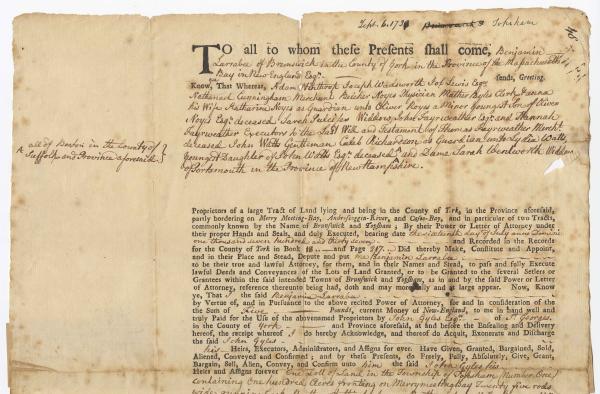 Sept. 6. 173 Topsham
TO all to whom these Presents shall come, Benjamin
Larrabee of Brunswick in the County of York in the Province of the Massachusetts
Bay in New England Esqr. sends, Greeting.
Know, That Whereas, Adam Winthrop Joseph Wadsworth Job Lewis Esqrs
Nathanael Cunningham Merchant Belcher Noyes Physician Mather Byles Clerk & Anna
his Wife Katharine Noyes as Guardian unto Oliver Noyes a Minor Youngest Son of Oliver
Noyes Esqr deceased Sarah Widdow, John Fayrweather Esqr and Hannah
Fayrweather Executors to the Last Will and Testament of Thomas Fayrweather Mercht
all of Boston in the County of
deceased John Watts Gentleman Caleb Richardson as Guardian unto Lydia Watts
Suffolk and Province aforesaid
Youngest Daughter of John Watts Esqr deceased and Dame Sarah Wentworth Widdow
of Portsmouth in the Province of New Hampshire.
Proprietors of a large Tract of Land lying and being in the County of York, in the Province aforesaid,
partly bordering on Merry Meeting-Bay, Androscoggin-River, and Casco-Bay, and in particular of two Tracts,
commonly known by the Name of Brunswick and Topsham; By their Power or Letter of Attorney under
their proper Hands and Seals, and duly Executed, bearing date the sixteenth day of July Anno Domini
one thousand seven hundred and thirty seven and Recorded in the Records
for the County of York in Book 18 and Page 247. Did thereby Make, Constitute and Appoint,
and in their Place and Stead, Depute and put me Benjamin Larrabe
to be their true and lawful Attorney, for them, and in their Names and Stead, to pass and fully Execute
lawful Deeds and Conveyances of the Lots of Land Granted, or to be Granted to the several Setlers or
Grantees within the said intended Towns of Brunswick and Topsham, as in and by the said Power or Letter
of Attorney, reference thereunto being had, doth and may more fully and at large appear. Now, Know
ye, That I the said Benjamin Larrabe
by Virtue of, and in Pursuance to the above recited Power of Attorney, for and in consideration of the
the Sum of Five Pounds, current Money of New-England, to me in hand well and
truly Paid for the Use of the abovenamed Proprietors by John Gyles Esqr of St. Georges
in the County of York and Province aforesaid, at and before the Ensealing and Delivery
hereof, the receipt whereof I do hereby Acknowledge, and thereof do Acquit, Exonerate and Discharge
the said John Gyles
his Heirs, Executors, Administrators, and Assigns for ever. Have Given, Granted, Bargained, Sold,
Aliened, Conveyed and Confirmed; and by these Presents, do Freely, Fully, Absolutely, Give, Grant,
Bargain, Sell, Alien, Convey, and Confirm unto him the said John Gyles his
Heirs and Assigns forever One Lott of Land in the Township of Topsham Number One
containing One hundred Acres fronting on Merrymeeting Bay Twenty five rods